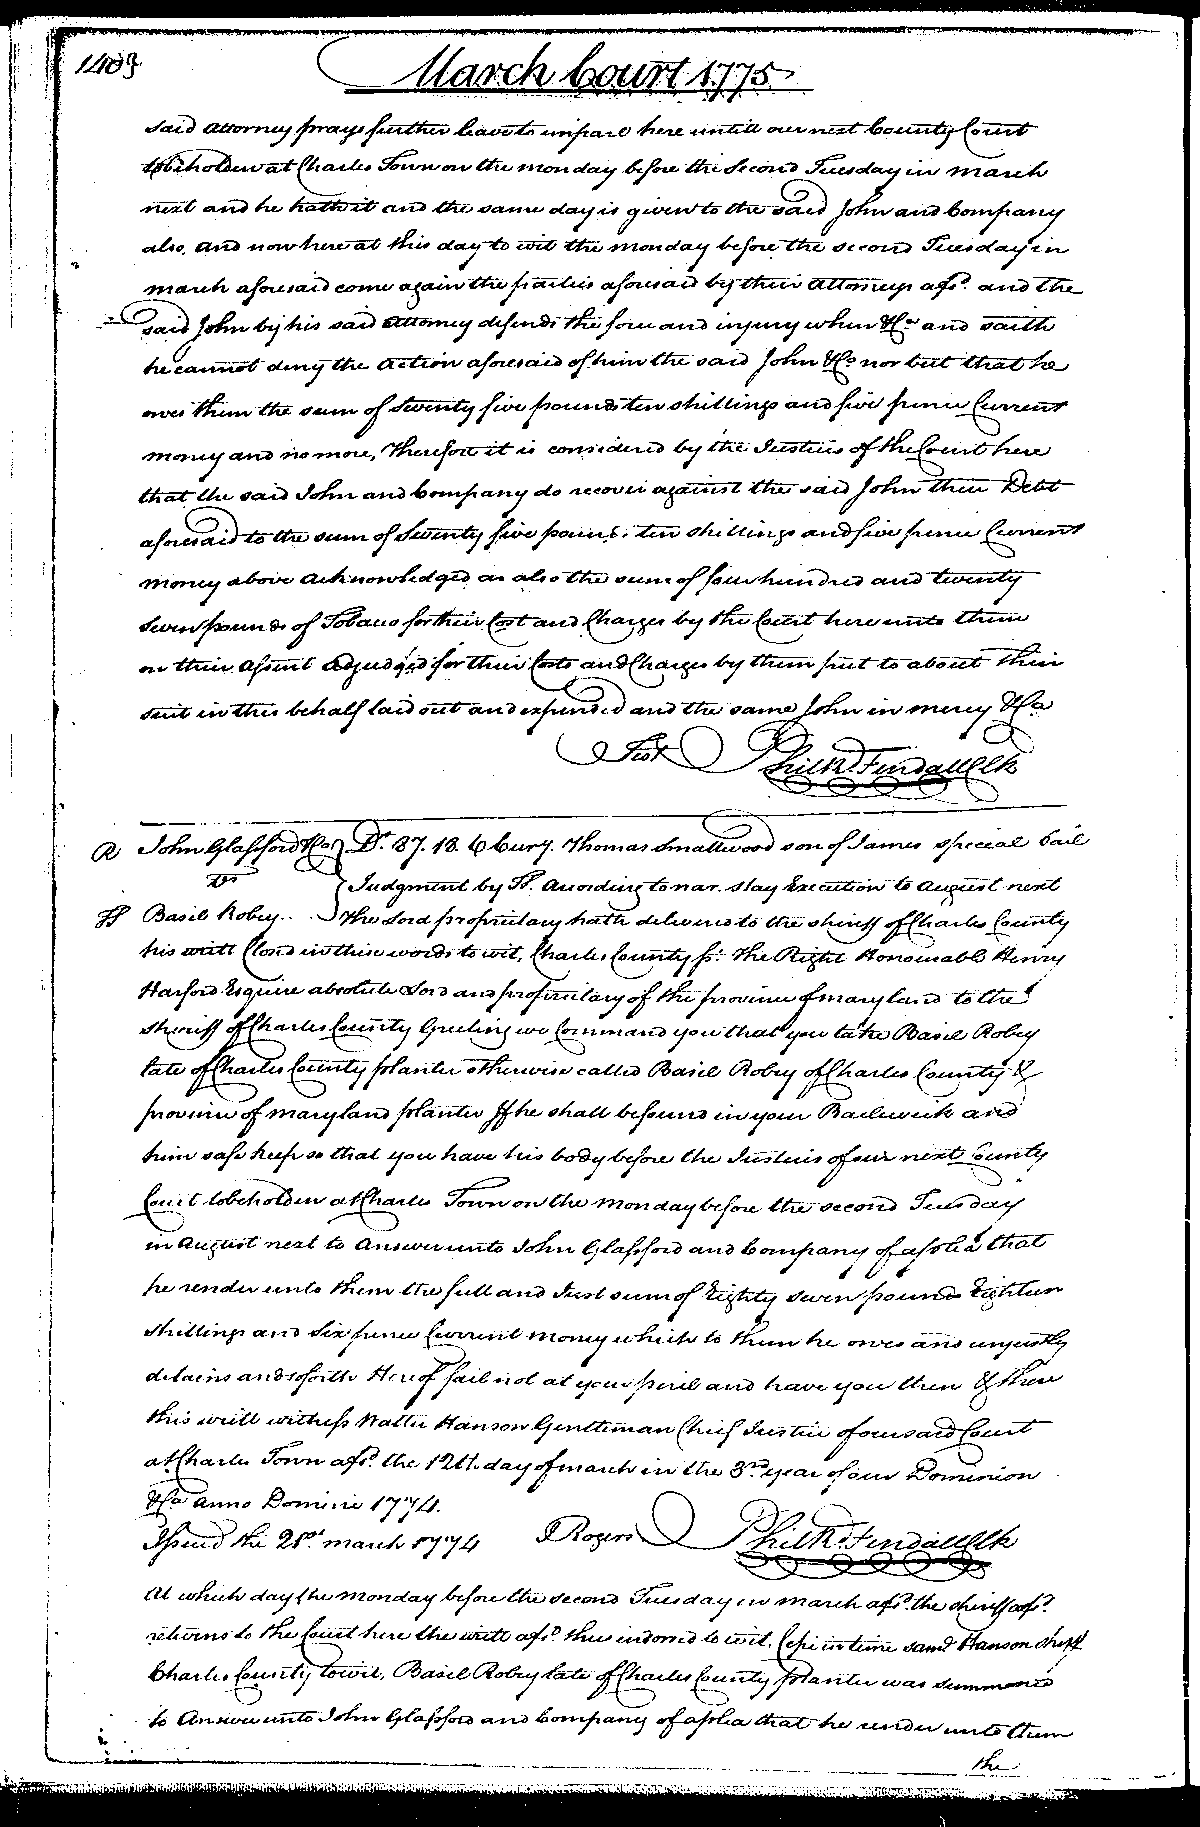 1403
March Court 1775
said attorney prays further leave to imparl here untill our next County Court
to be holden at Charles Town on the monday before the Second Tuesday in march
next and he hath it and the same day is given to the said John and Company
also, and now here at this day to wit the monday before the second Tuesday in
march aforesaid come again the parties aforesaid by their attorneys afsd. and the
said John by his said attorney defends the force and injury when &Ca and saith
he cannot deny the action aforesaid of him the said John &Co nor but that he
owes them the sum of Seventy five pounds ten shillings and five pence Current
money and no more, Therefore it is considered by the Justices of the Court here
that the said John and Company do recover against the said John their Debt
aforesaid to the sum of Seventy five pounds ten shillings and five pence Current
money above acknowledged as also the sum of four hundred and twenty
Seven pounds of Tobacco for their Cost and Charges by the Court here unto them
on their assent adjudged for their Costs and Charges by them put to about their
suit in this behalf laid out and expended and the same John in mercy &Ca
Test Phil: Rd. Fendall Clk
R John Glassford &Co } Dt. 87. 18. 6 Curry. Thomas Smallwood son of James special bail
vs } Judgment by ff. according to nar. stay Execution to august next
ff Basil Robey.. } The Lord proprietary hath delivered to the sheriff of Charles County
his writt Closed in these words to wit, Charles County ss: The Right Honourable Henry
Harford Esquire absolute Lord and proprietary of the province of maryland to the
Sheriff of Charles County Greeting we Command you that you take Basil Robey
late of Charles County planter otherwise called Basil Robey of Charles County &
province of maryland planter If he shall be found in your Bailiwick and
him safe keep so that you have his body before the Justices of our next County
Court to be holden at Charles Town on the monday before the second Tuesday
in august next to answer unto John Glassford and Company of a plea that
he render unto them the full and Just sum of Eighty seven pounds Eighteen
shillings and six pence Current money which to them he owes and unjustly
detains and so forth Hereof fail not at your peril and have you then & there
this writt witness Walter Hanson Gentleman Chief Justice of our said Court
at Charles Town afsd. the 12th. day of march in the 3rd year of our Dominion
&Ca anno Domini 1774.
Issued the 21st. march 1774 Rogers Phil: Rd. Fendall Clk
At which day the monday before the second Tuesday in march afsd. the sheriff afsd.
returns to the Court here the writt afsd. thus indorsed to wit. Cepi in time Saml Hanson shff
Charles County to wit, Basil Robey late of Charles County planter was summoned
to Answer unto John Glassford and Company of a plea that he render unto them
the